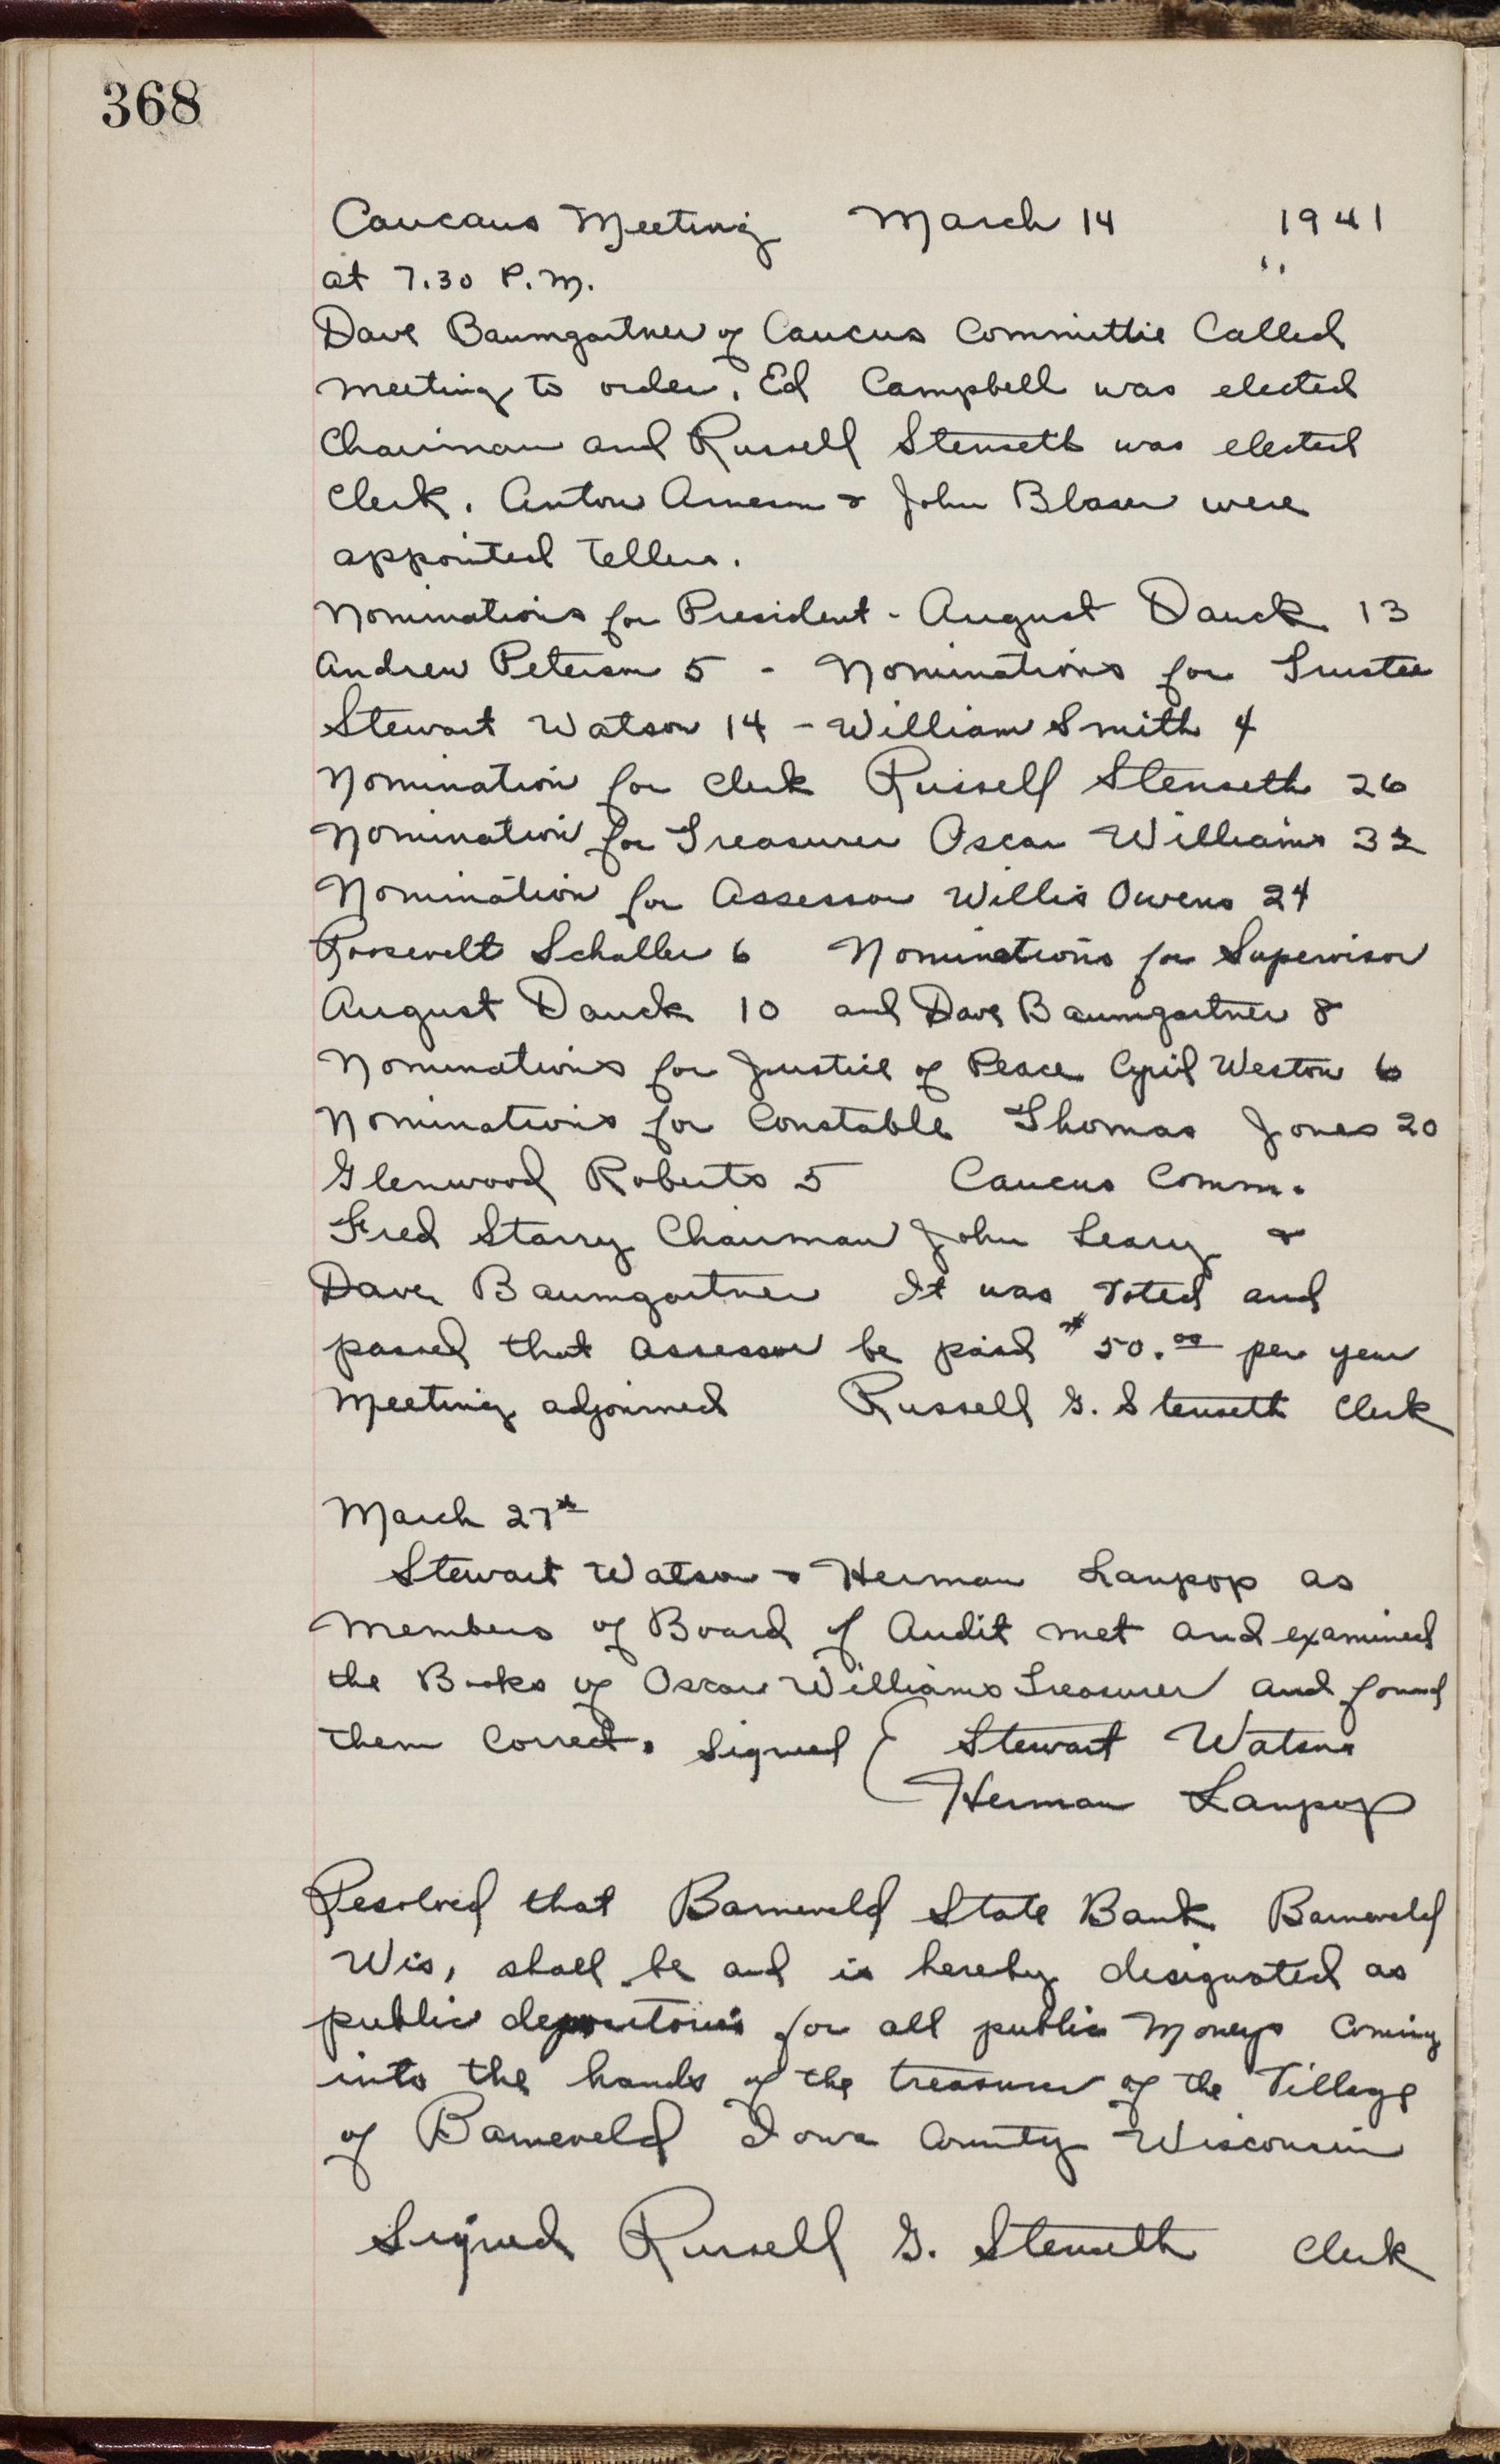 368
Caucaus Meeting March 14 1941
at 7.30 P.M. "
Dave Baumgartner of Caucus Committie Called
meeting to order. Ed Campbell was elected
Chairman and Russell Stenseth was elected
Clerk. Anton Arneson & John Blaser were
appointed Tellers.
Nominations for President - August Dauck 13
Andrew Peterson 5 - Nominations for Trustee
Stewart Watson 14 - William Smith 4
Nomination for Clerk Russell Stenseth 26
Nomination for Treasurer Oscar Williams 32
Nomination for Assessor Willis Owens 24
Roosevelt Schaller 6 Nominations for Supervisor
August Dauck 10 and Dave Baumgartner 8
Nominations for Justice of Peace Cyril Weston 6
Nominations for Constable Thomas Jones 20
Glenwood Roberts 5 Caucus Comm.
Fred Starry Chairman John Leary &
Dave Baumgartner It was Voted and
passed that assessor be paid $50.00 per year
Meeting adjourned Russell G. Stenseth Clerk
March 27th
Stewart Watson & Herman Laupop as
Members of Board of Audit met and examined
the Books of Oscar Williams Treasurer and found
them Correct. Signed { Stewart Watson
Herman Laupop
Resolved that Barneveld State Bank Barneveld
Wis, shall be and is hereby designated as
public depositories for all public Moneys Coming
into the hands of the treasurer of the Village
of Barneveld Iowa County Wisconsin
Signed Russell G. Stenseth Clerk